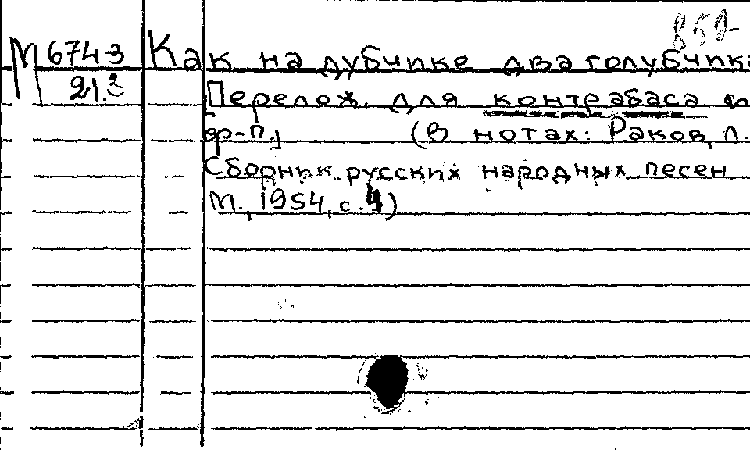 859-
М 674-3 Как на дубчике два голубчика
21.2 [Перелож. для контрабаса и
ф-п.] (В нотах: Раков, Л.
Сборник русских народных песен
М., 1954, с. 4)